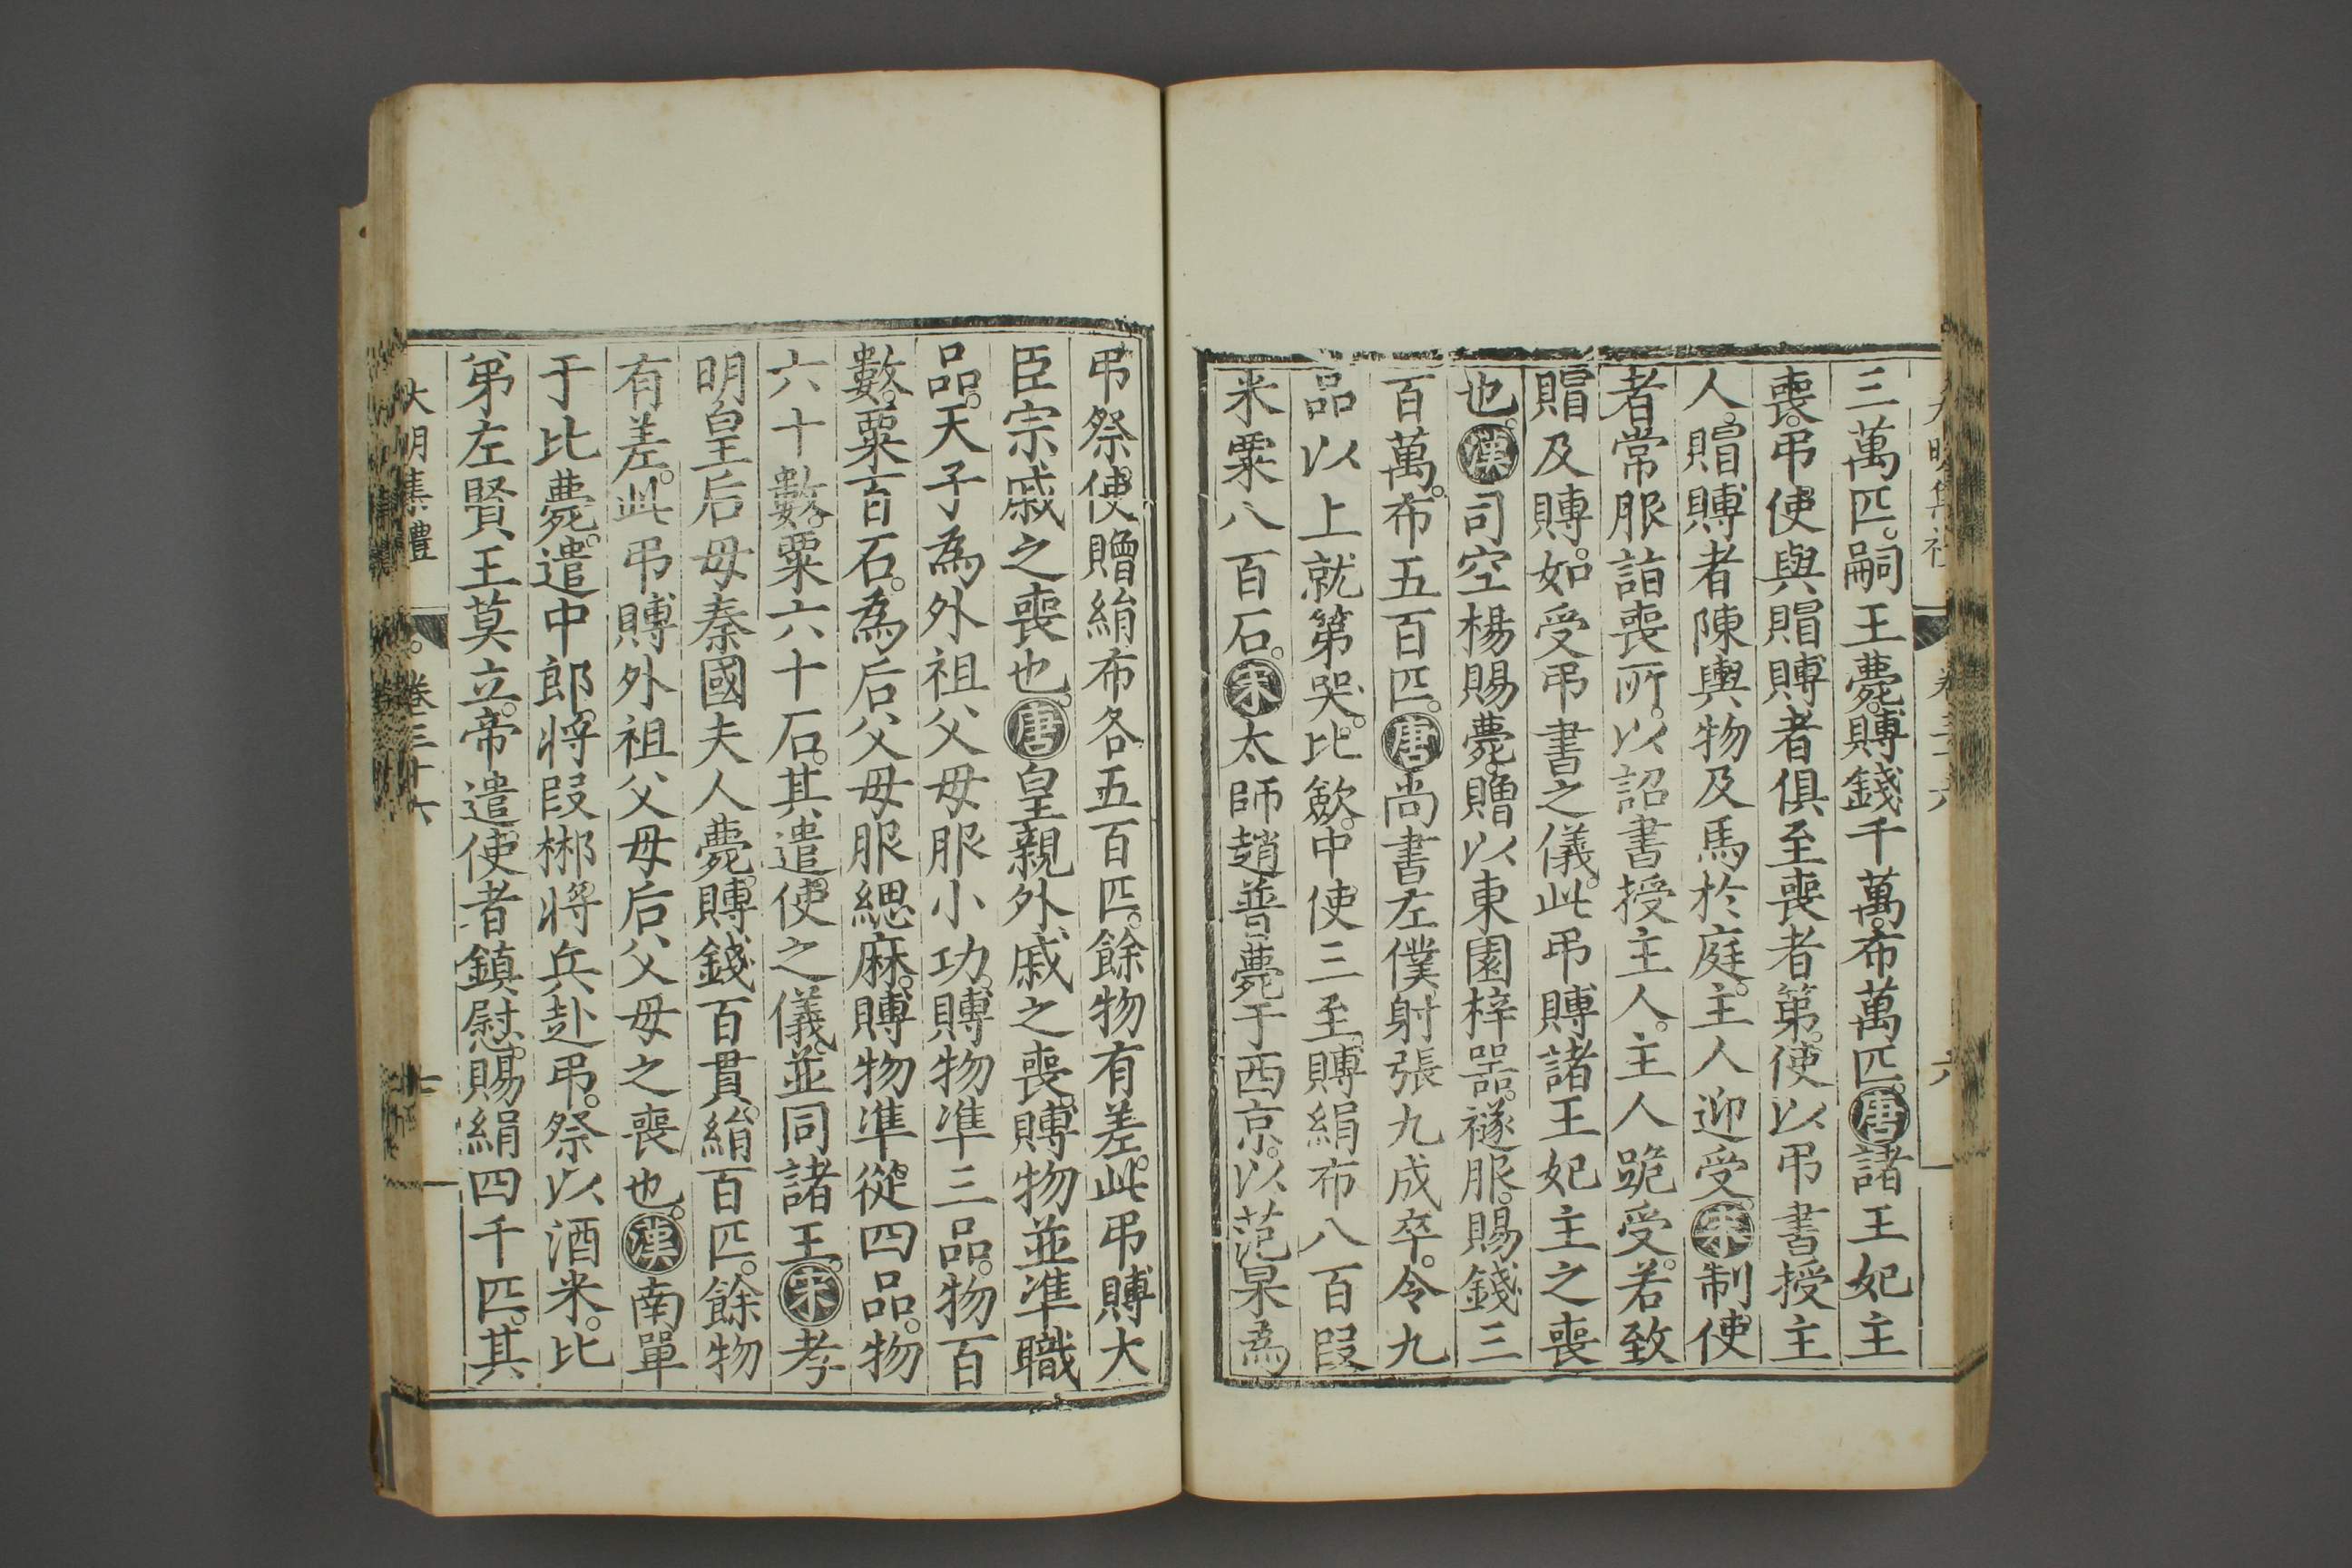 三萬匹。嗣王薨。賻錢千萬。布萬匹。唐諸王妃主
喪。弔使與賵賻者俱至喪者第。使以弔書授主
人。賵賻者陳輿物及馬於庭。主人迎受。宋制使
者常服詣喪所。以詔書授主人。主人跪受。若致
賵及賻。如受弔書之儀。此弔賻諸王妃主之喪
也。漢司空楊賜薨。贈以東園梓器。襚服。賜錢三
百萬。布五百匹。唐尚書左僕射張九成卒。令九
品以上就第哭。比斂。中使三至。賻絹布八百段
米粟八百石。宋太師趙普薨于西京。以范杲為
弔祭使。贈絹布各五百匹。餘物有差。此弔賻大
臣宗戚之喪也。唐皇親外戚之喪。賻物並準職
品。天子為外祖父母服小功。賻物準三品。物百
數。粟百石。為后父母服緦麻。賻物準從四品。物
六十數。粟六十石。其遣使之儀。並同諸王。宋孝
明皇后母秦國夫人薨。賻錢百貫。絹百匹。餘物
有差。此弔賻外祖父母后父母之喪也。漢南單
于比薨。遣中郎。將段郴。將兵赴弔。祭以酒米。比
弟左賢王莫立。帝遣使者鎮慰。賜絹四千匹。其
大明集禮 卷三十六 七